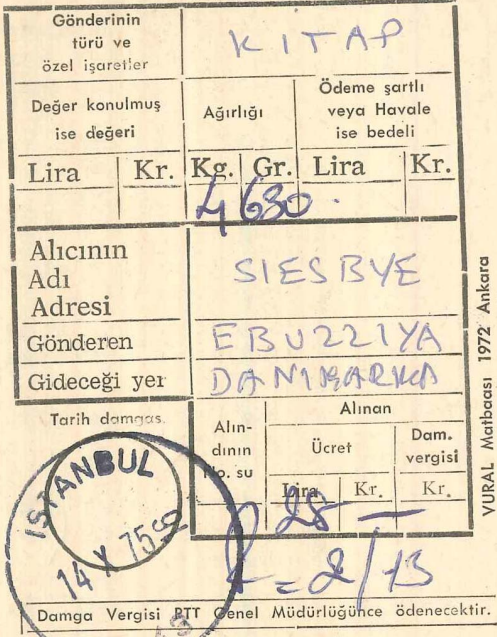 Gönderinin türü ve özel işaretler
KİTAP
Değer konulmuş ise değeri
Ağırlığı
Ödeme şartlı veya Havale ise bedeli
Lira Kr. Kg. Gr. Lira Kr.
4 630.
Alıcının Adı Adresi
SIESBYE
Gönderen
EBUZZIYA
Gideceği yer
DANIMARKA
Tarih damgas.
Alındının No. su
Alınan
Ücret
Dam. vergisi
Lira Kr. Kr.
28 —
2/13
İSTANBUL
14 X 75
Damga Vergisi PTT Genel Müdürlüğünce ödenecektir.
VURAL Matbaası 1972 Ankara